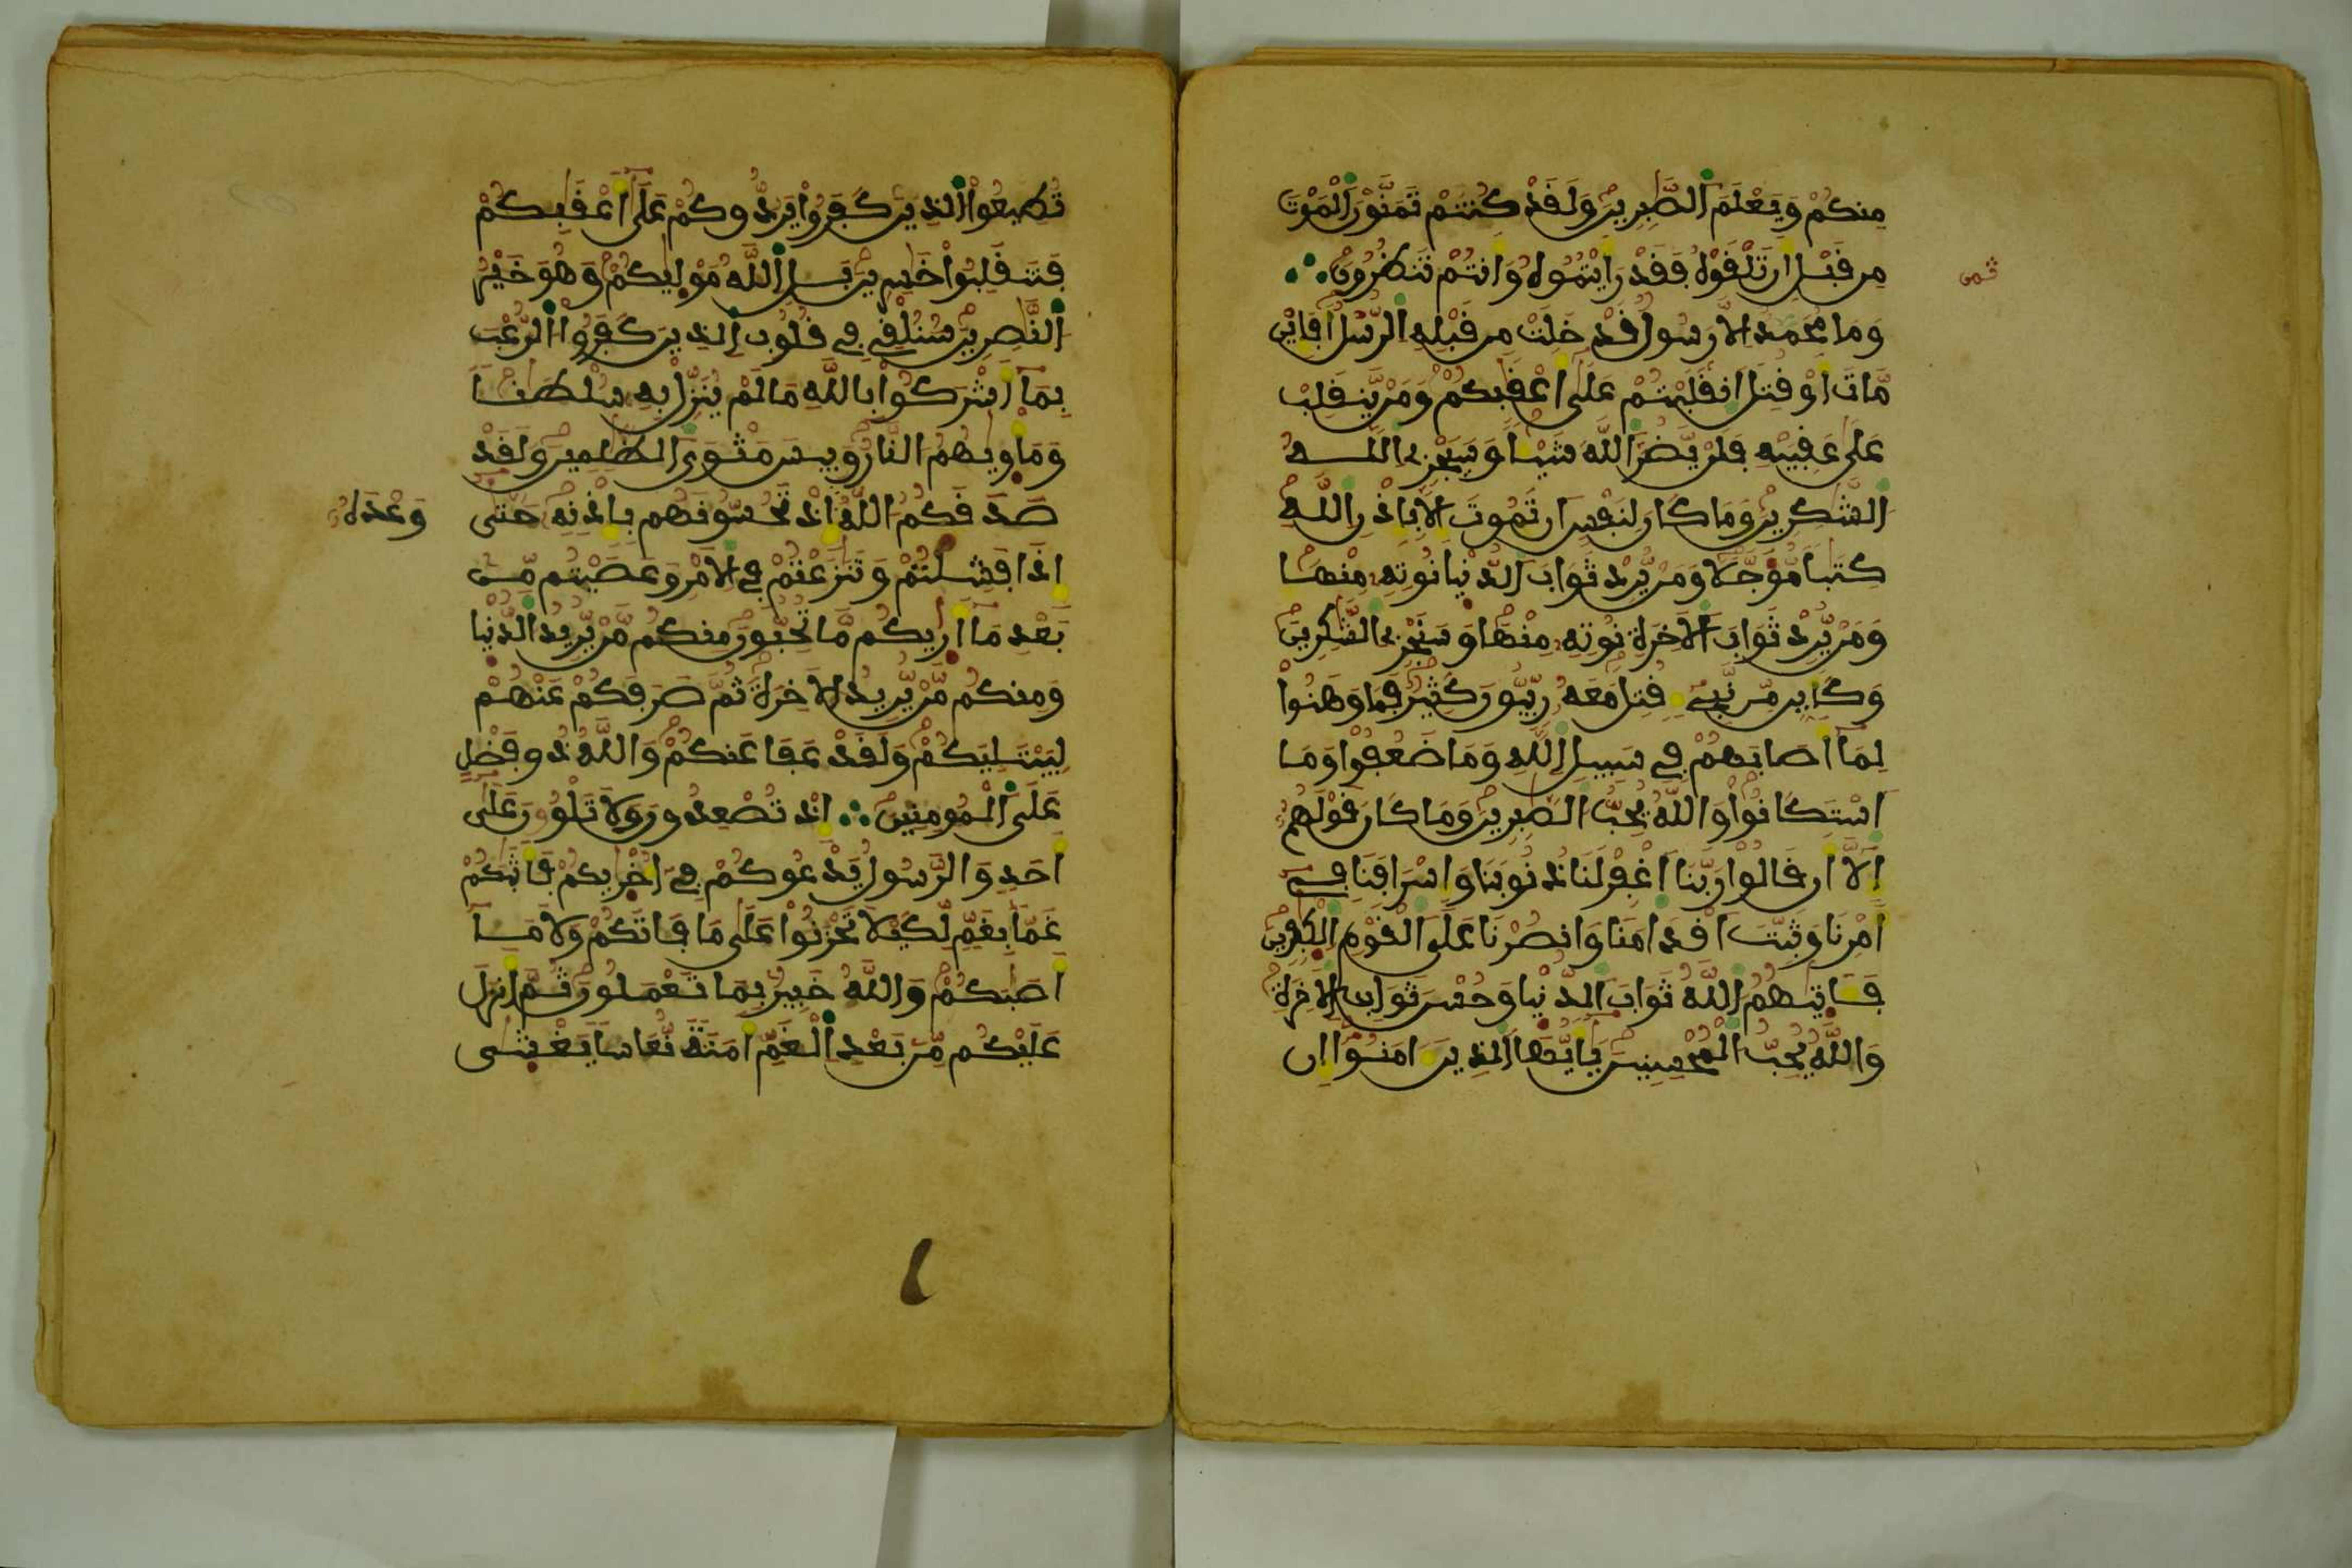 مِنكُمْ وَيَعْلَمَ ٱلصَّٰبِرِينَ وَلَقَدْ كُنتُمْ تَمَنَّوْنَ ٱلْمَوْتَ
مِن قَبْلِ أَن تَلْقَوْهُ فَقَدْ رَأَيْتُمُوهُ وَأَنتُمْ تَنظُرُونَ ∴
ثمن
وَمَا مُحَمَّدٌ إِلَّا رَسُولٌ قَدْ خَلَتْ مِن قَبْلِهِ ٱلرُّسُلُ أَفَإِيْن
مَّاتَ أَوْ قُتِلَ ٱنقَلَبْتُمْ عَلَىٰ أَعْقَٰبِكُمْ وَمَنْ يَّنقَلِبْ
عَلَىٰ عَقِبَيْهِ فَلَنْ يَّضُرَّ ٱللَّهَ شَيْئًا وَسَيَجْزِي ٱللَّهُ
ٱلشَّٰكِرِينَ وَمَا كَانَ لِنَفْسٍ أَن تَمُوتَ إِلَّا بِإِذْنِ ٱللَّهِ
كِتَٰبًا مُّؤَجَّلًا وَمَنْ يُّرِدْ ثَوَابَ ٱلدُّنْيَا نُوتِهِ مِنْهَا
وَمَنْ يُّرِدْ ثَوَابَ ٱلْأَخِرَةِ نُوتِهِ مِنْهَا وَسَنَجْزِي ٱلشَّٰكِرِينَ
وَكَأَيِّن مِّن نَّبِيءٍ قُتِلَ مَعَهُ رِبِّيُّونَ كَثِيرٌ فَمَا وَهَنُوا
لِمَا أَصَابَهُمْ فِي سَبِيلِ ٱللَّهِ وَمَا ضَعُفُوا وَمَا
ٱسْتَكَانُوا وَٱللَّهُ يُحِبُّ ٱلصَّٰبِرِينَ وَمَا كَانَ قَوْلَهُمُ
إِلَّا أَن قَالُوا رَبَّنَا ٱغْفِرْ لَنَا ذُنُوبَنَا وَإِسْرَافَنَا فِي
أَمْرِنَا وَثَبِّتْ أَقْدَامَنَا وَٱنصُرْنَا عَلَى ٱلْقَوْمِ ٱلْكَٰفِرِينَ
فَـَٔاتَىٰهُمُ ٱللَّهُ ثَوَابَ ٱلدُّنْيَا وَحُسْنَ ثَوَابِ ٱلْأَخِرَةِ
وَٱللَّهُ يُحِبُّ ٱلْمُحْسِنِينَ يَٰأَيُّهَا ٱلَّذِينَ ءَامَنُوا إِن
تُطِيعُوا ٱلَّذِينَ كَفَرُوا يَرُدُّوكُمْ عَلَىٰ أَعْقَٰبِكُمْ
فَتَنقَلِبُوا خَٰسِرِينَ بَلِ ٱللَّهُ مَوْلَىٰكُمْ وَهُوَ خَيْرُ
ٱلنَّٰصِرِينَ سَنُلْقِي فِي قُلُوبِ ٱلَّذِينَ كَفَرُوا ٱلرُّعْبَ
بِمَا أَشْرَكُوا بِٱللَّهِ مَا لَمْ يُنَزِّلْ بِهِ سُلْطَٰنًا
وَمَأْوَىٰهُمُ ٱلنَّارُ وَبِيسَ مَثْوَى ٱلظَّٰلِمِينَ وَلَقَدْ
صَدَقَكُمُ ٱللَّهُ إِذْ تَحُسُّونَهُم بِإِذْنِهِ حَتَّىٰ
وَعْدَهُ
إِذَا فَشِلْتُمْ وَتَنَٰزَعْتُمْ فِي ٱلْأَمْرِ وَعَصَيْتُم مِّن
بَعْدِ مَا أَرَىٰكُم مَّا تُحِبُّونَ مِنكُم مَّنْ يُّرِيدُ ٱلدُّنْيَا
وَمِنكُم مَّنْ يُّرِيدُ ٱلْأَخِرَةَ ثُمَّ صَرَفَكُمْ عَنْهُمْ
لِيَبْتَلِيَكُمْ وَلَقَدْ عَفَا عَنكُمْ وَٱللَّهُ ذُو فَضْلٍ
عَلَى ٱلْمُومِنِينَ ∴ إِذْ تُصْعِدُونَ وَلَا تَلْوُونَ عَلَىٰ
أَحَدٍ وَٱلرَّسُولُ يَدْعُوكُمْ فِي أُخْرَىٰكُمْ فَأَثَٰبَكُمْ
غَمًّا بِغَمٍّ لِّكَيْلَا تَحْزَنُوا عَلَىٰ مَا فَاتَكُمْ وَلَا مَا
أَصَٰبَكُمْ وَٱللَّهُ خَبِيرٌ بِمَا تَعْمَلُونَ ثُمَّ أَنزَلَ
عَلَيْكُم مِّن بَعْدِ ٱلْغَمِّ أَمَنَةً نُّعَاسًا يَغْشَىٰ